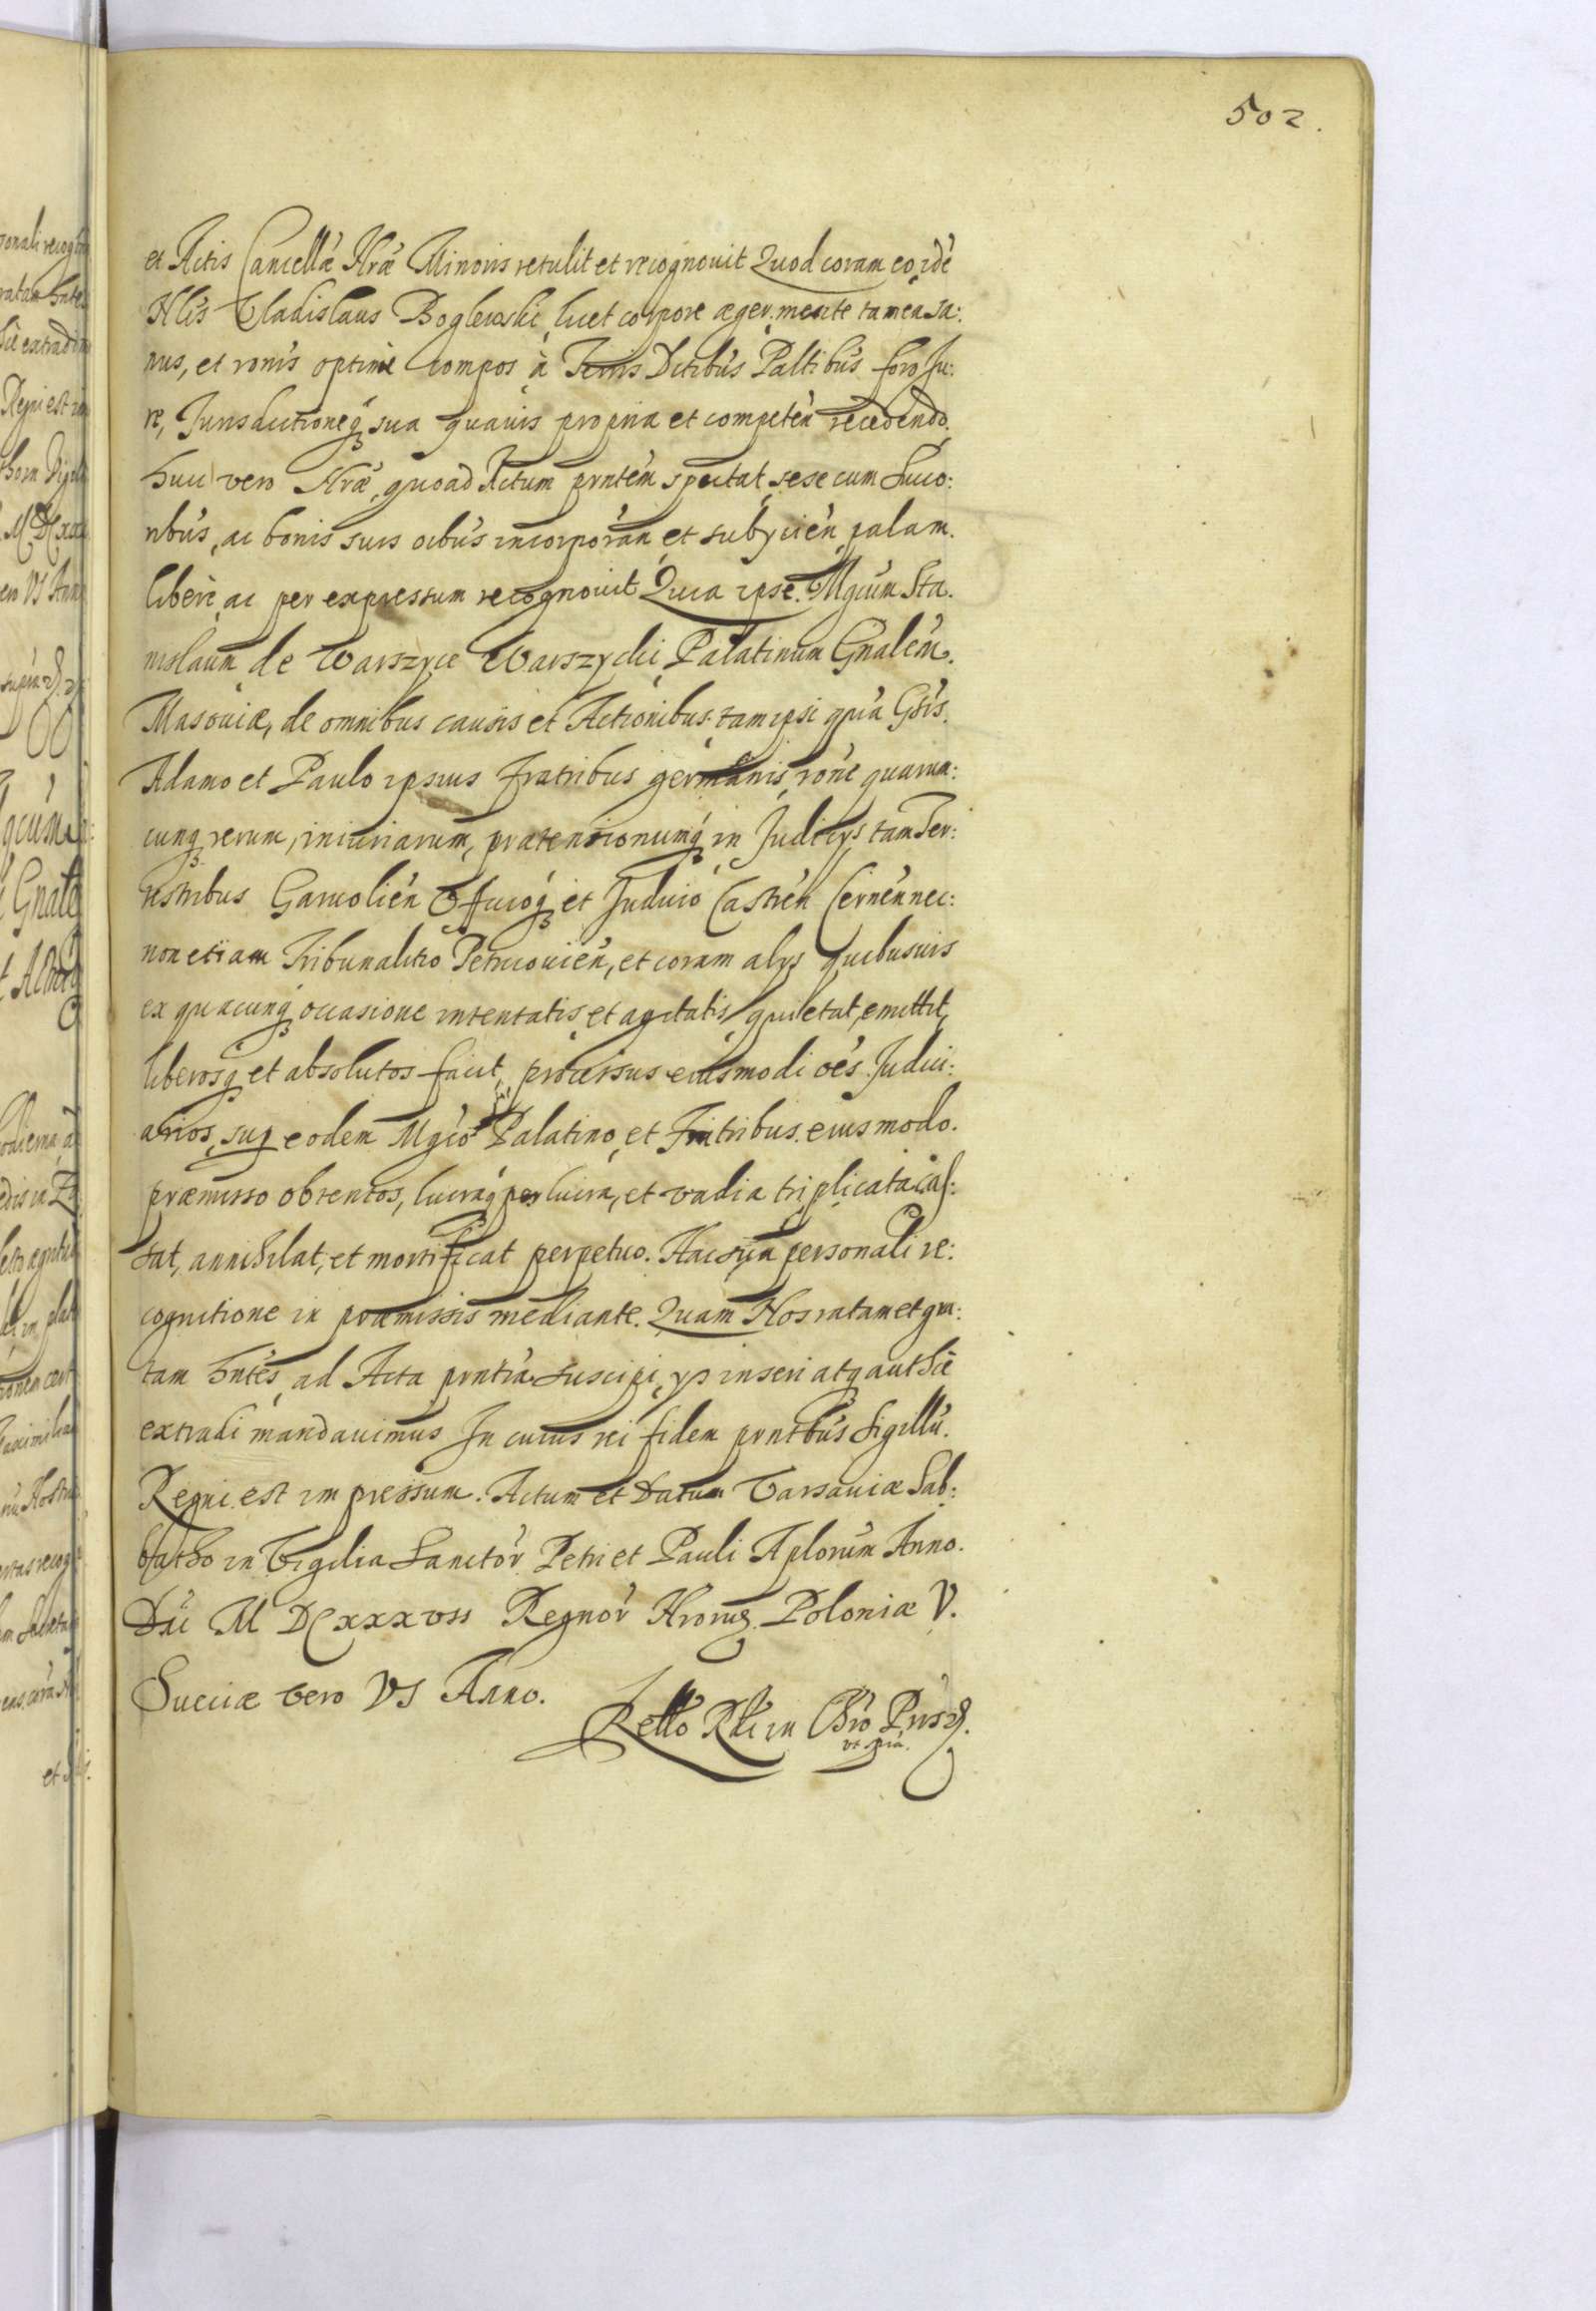 502.
et Actis Cancellæ Nræ Minoris retulit et recognouit Quod coram eo idẽ
Nlis Vladislaus Boglewski licet corpore æger, mente tamen sa:
nus, et ronis optimè compos à Terris Ditibus Paltibus foro Ju:
re, Jurisdictioneq sua quauis propria et competen recedendo
huic vero Nræ, quoad Actum prntem spectat, sese cum Succo:
ribus, ac bonis suis oibus incorporan et subycien palam.
liberè ac per expressum recognouit Quia ipse Mgcum Sta.
nislaum de Warszyce Warszycki Palatinum Gnalem.
Masouiæ, de omnibus causis et Actionibus tam ipsi qua Gsis.
Adamo et Paulo ipsius fratribus germanis, rone quarum:
cunq rerum, iniuriarum, prætensionumq in Judicys tam Ter:
restribus Garuolien Officioq et Judicio Castren Cernen nec:
non etiam Tribunalitio Petricouien, et coram alys quibusuis
ex quacunq occasione intentatis et agitatis quietat, emittit,
liberosq et absolutos facit, processus eiusmodi oes Judici:
arios, sup eodem Mgco Palatino, et Fratribus eius modo.
præmisso obtentos, lucraq per lucra, et vadia triplicata cas:
sat, annihilat, et mortificat perpetuo. Hac sua personali re:
cognitione in præmissis mediante. Quam Nos ratam et gra:
tam hntes, ad Acta prntia suscipi, ys inseri atq authcè
extradi mandauimus In cuius rei fidem prntbus Sigillu.
Regni est impressum. Actum et Datum Varsauiæ Sab:
batho in Vigilia Sanctor Petri et Pauli Aplorum Anno.
Dni M DCxxxvii Regnor Nrorum Poloniæ V.
Sueciæ vero VI Anno.
ut spra.